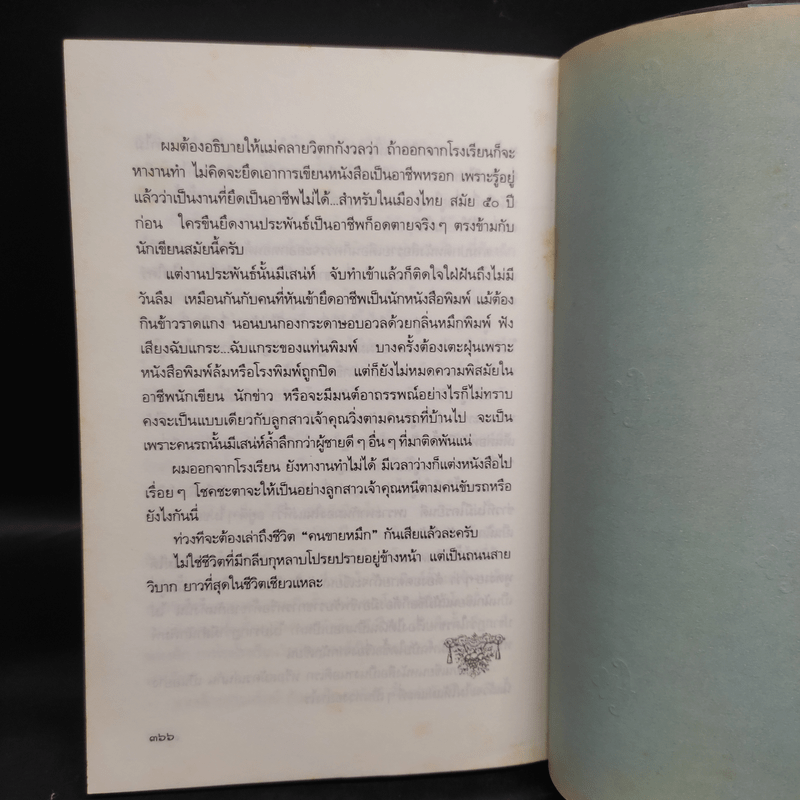 ผมต้องอธิบายให้แม่คลายวิตกกังวลว่า ถ้าออกจากโรงเรียนก็จะ
หางานทำ ไม่คิดจะยึดเอาการเขียนหนังสือเป็นอาชีพหรอก เพราะรู้อยู่
แล้วว่าเป็นงานที่ยึดเป็นอาชีพไม่ได้...สำหรับในเมืองไทย สมัย ๕๐ ปี
ก่อน ใครขืนยึดงานประพันธ์เป็นอาชีพก็อดตายจริงๆ ตรงข้ามกับ
นักเขียนสมัยนี้ครับ
แต่งานประพันธ์นั้นมีเสน่ห์ จับทำเข้าแล้วก็ติดใจใฝ่ฝันถึงไม่มี
วันลืม เหมือนกันกับคนที่หันเข้ายึดอาชีพเป็นนักหนังสือพิมพ์ แม้ต้อง
กินข้าวราดแกง นอนบนกองกระดาษอบอวลด้วยกลิ่นหมึกพิมพ์ ฟัง
เสียงฉับแกระ...ฉับแกระของแท่นพิมพ์ บางครั้งต้องเตะฝุ่นเพราะ
หนังสือพิมพ์ล้มหรือโรงพิมพ์ถูกปิด แต่ก็ยังไม่หมดความพิสมัยใน
อาชีพนักเขียน นักข่าว หรือจะมีมนต์อาถรรพณ์อย่างไรก็ไม่ทราบ
คงจะเป็นแบบเดียวกับลูกสาวเจ้าคุณวิ่งตามคนรถที่บ้านไป จะเป็น
เพราะคนรถนั้นมีเสน่ห์ล้ำลึกกว่าผู้ชายดีๆ อื่นๆ ที่มาติดพันแน่
ผมออกจากโรงเรียน ยังหางานทำไม่ได้ มีเวลาว่างก็แต่งหนังสือไป
เรื่อยๆ โชคชะตาจะให้เป็นอย่างลูกสาวเจ้าคุณหนีตามคนขับรถหรือ
ยังไงกันนี่
ท่วงทีจะต้องเล่าถึงชีวิต "คนขายหมึก" กันเสียแล้วละครับ
ไม่ใช่ชีวิตที่มีกลีบกุหลาบโปรยปรายอยู่ข้างหน้า แต่เป็นถนนสาย
วิบาก ยาวที่สุดในชีวิตเชียวแหละ
๓๖๖